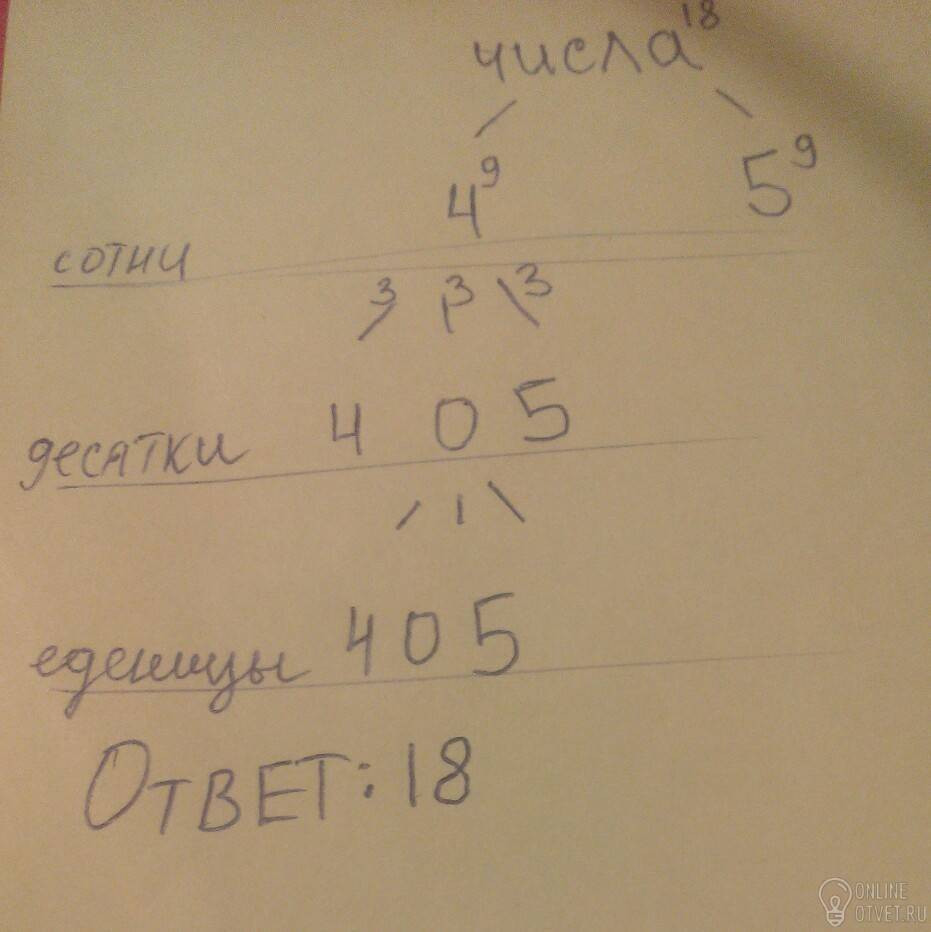 числа 18
4 9 5 9
сотни
3 3 3
десятки 4 0 5
еденицы 4 0 5
Ответ: 18
ONLINE
OTVET.RU